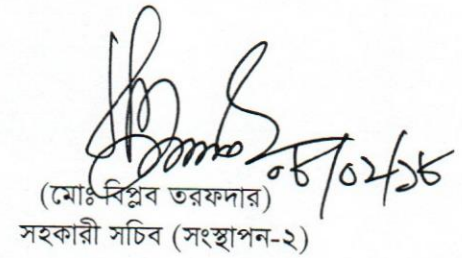 ০৮/০২/১৮
(মোঃ বিপ্লব তরফদার)
সহকারী সচিব (সংস্থাপন-২)